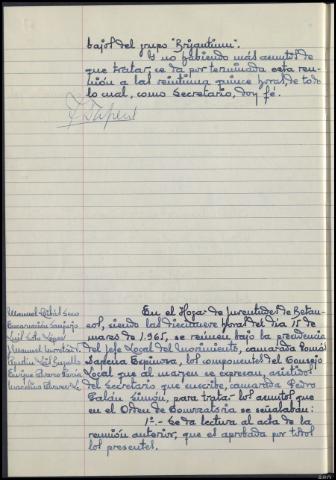 bajos del grupo "Brigantium".
Y no habiendo más asuntos de
que tratar, se da por terminada esta reu-
nión a las veintiuna quince horas, de to-
do lo cual, como Secretario, doy fé.
En el Hogar de Juventudes de Betan-
zos, siendo las diecinueve horas del día 15 de
marzo de 1.965, se reúnen, bajo la presidencia
del Jefe Local del Movimiento, camarada Tomás
Dapena Espinosa, los componentes del Consejo
Local que al margen se expresan, asistidos
del Secretario que suscribe, camarada Pedro
para tratar los asuntos que
en el Orden de Convocatoria se señalaban:
1º.- Se da lectura al acta de la
reunión anterior, que es aprobada por todos
los presentes.
Manuel
Encarnación
Luis López
Manuel
Agustín
Enrique Álvarez
Marcelino Álvarez